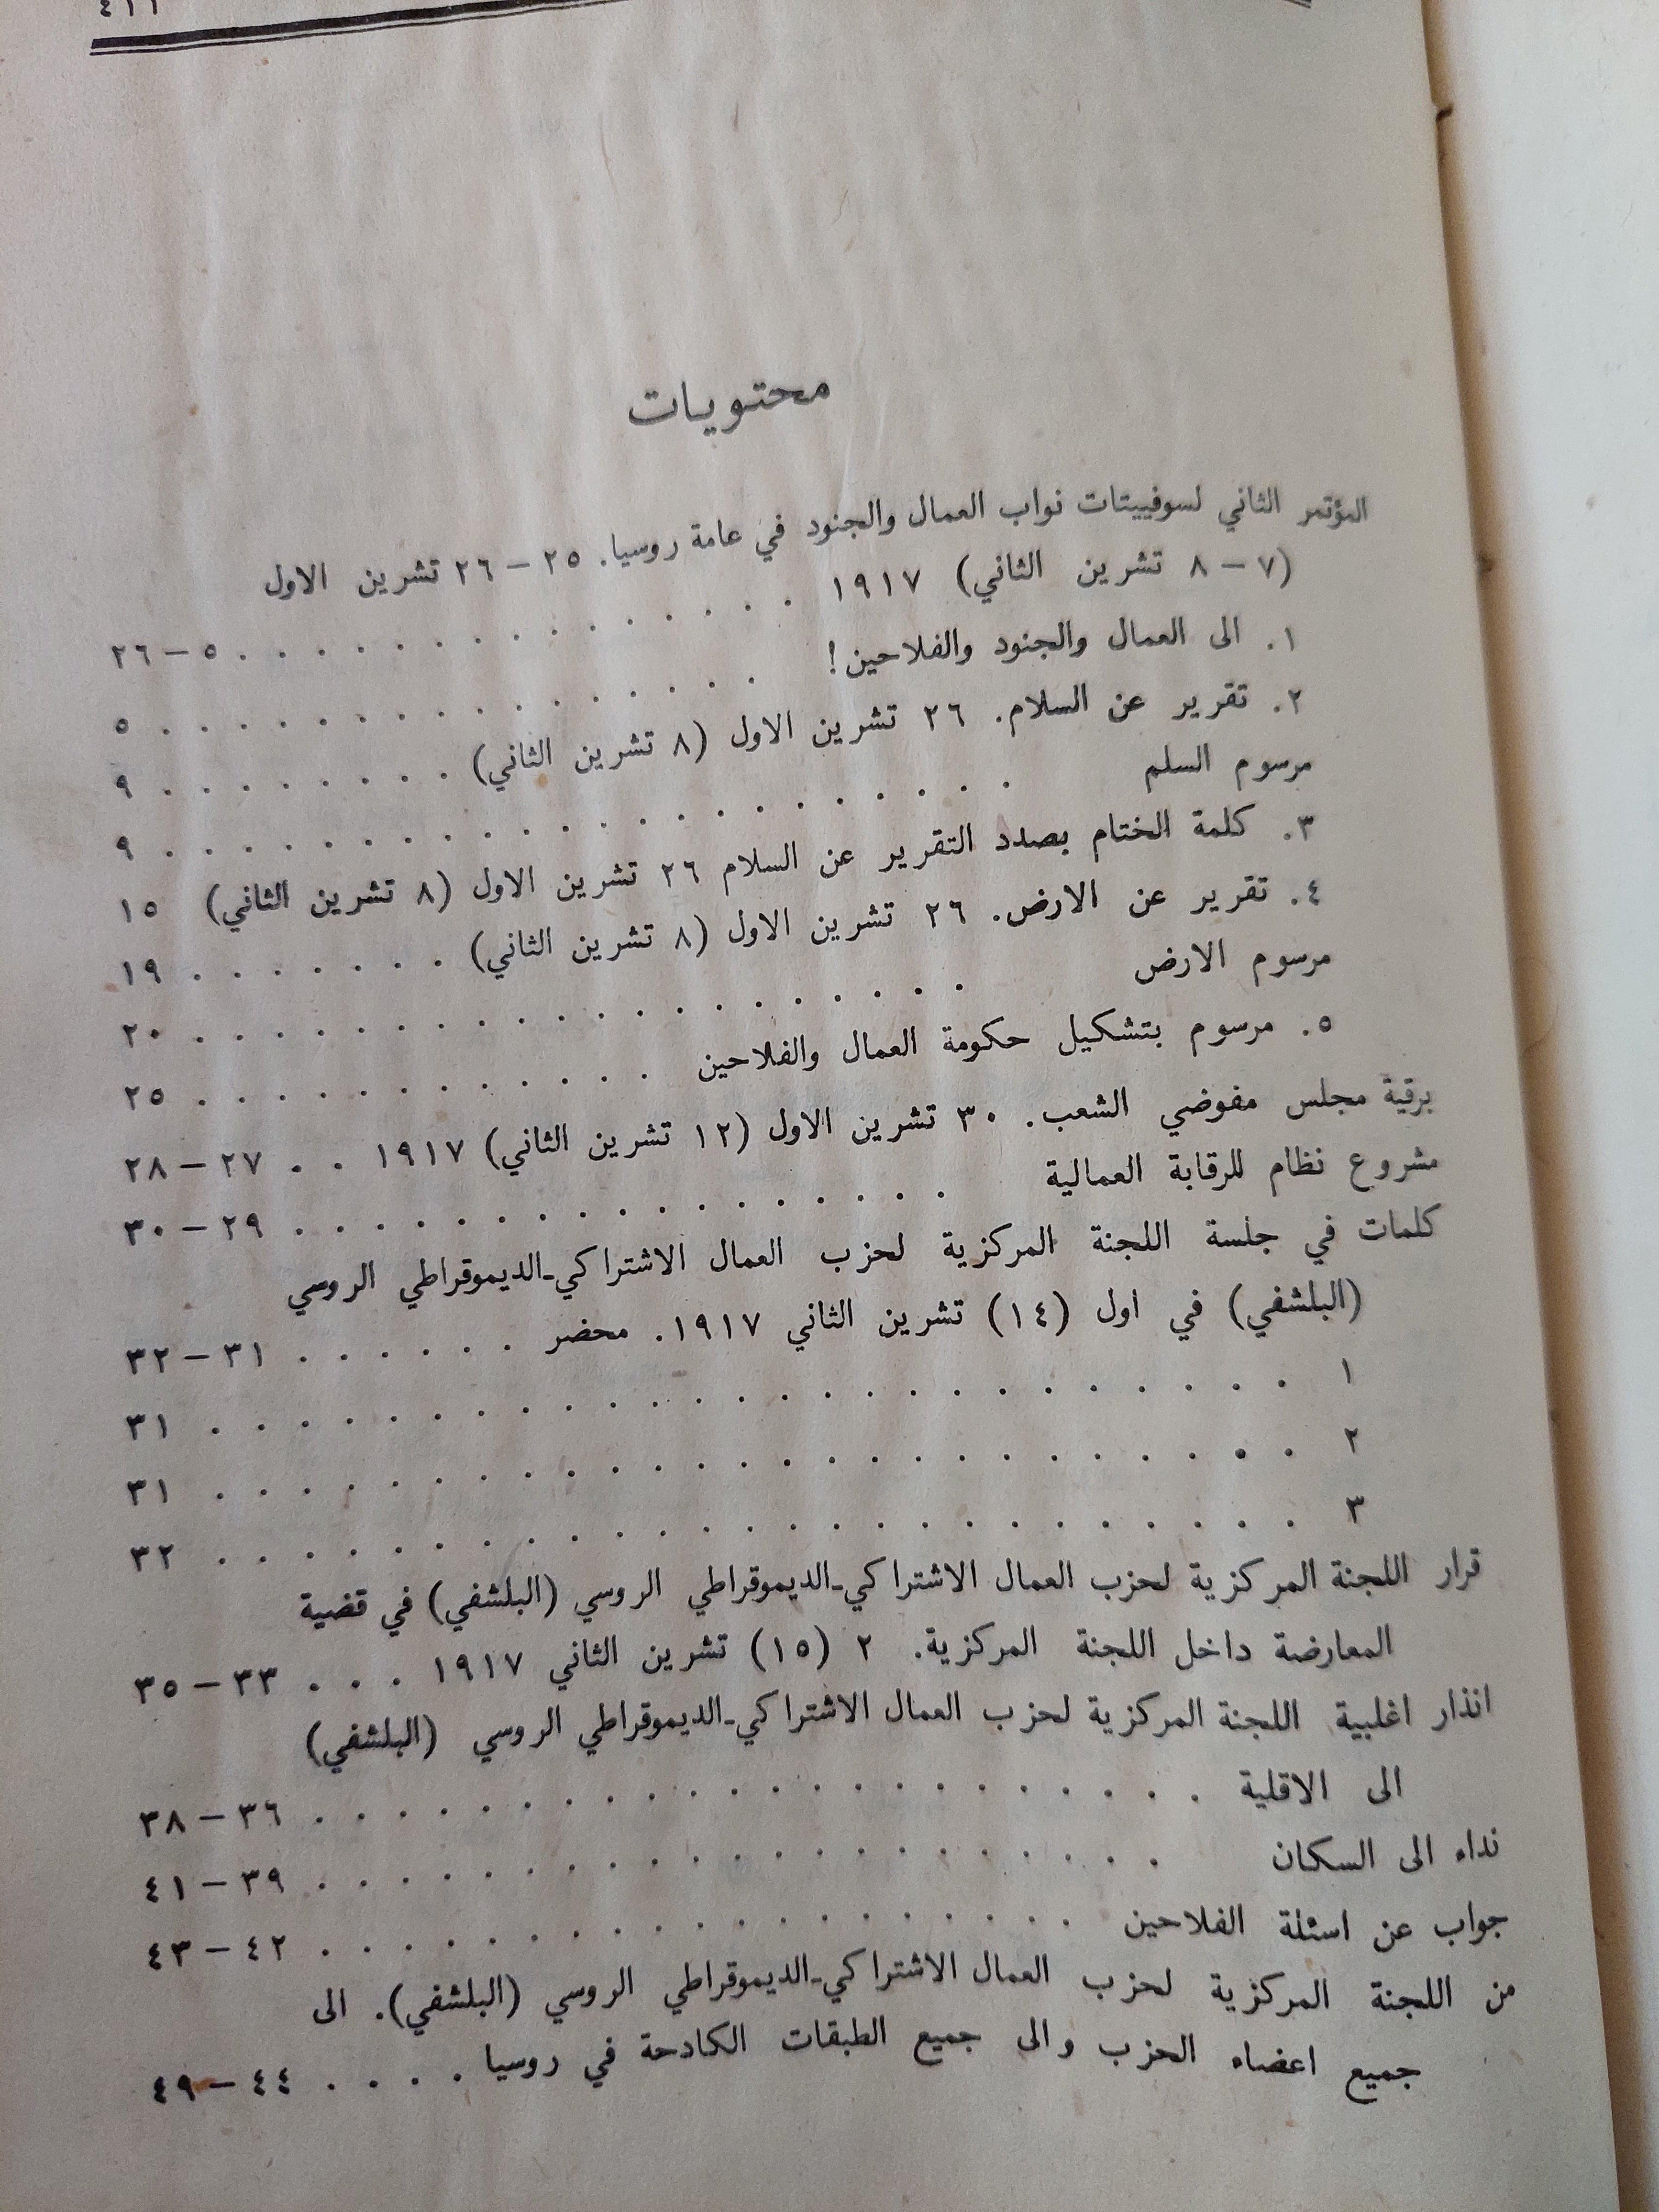 ٤١١
محتويات
المؤتمر الثاني لسوفييتات نواب العمال والجنود في عامة روسيا. ٢٥ – ٢٦ تشرين الاول
(٧ – ٨ تشرين الثاني) ١٩١٧ . . . . . . . . . . . . . . . ٥ – ٢٦
١. الى العمال والجنود والفلاحين! . . . . . . . . . . . . . . . . ٥
٢. تقرير عن السلام. ٢٦ تشرين الاول (٨ تشرين الثاني) . . . . . . . . ٩
مرسوم السلم . . . . . . . . . . . . . . . . . . . . . . ٩
٣. كلمة الختام بصدد التقرير عن السلام ٢٦ تشرين الاول (٨ تشرين الثاني) ١٥
٤. تقرير عن الارض. ٢٦ تشرين الاول (٨ تشرين الثاني) . . . . . . . ١٩
مرسوم الارض . . . . . . . . . . . . . . . . . . . . ٢٠
٥. مرسوم بتشكيل حكومة العمال والفلاحين . . . . . . . . . . . . ٢٥
برقية مجلس مفوضي الشعب. ٣٠ تشرين الاول (١٢ تشرين الثاني) ١٩١٧ . . ٢٧ – ٢٨
مشروع نظام للرقابة العمالية . . . . . . . . . . . . . . . . . ٢٩ – ٣٠
كلمات في جلسة اللجنة المركزية لحزب العمال الاشتراكي-الديموقراطي الروسي
(البلشفي) في اول (١٤) تشرين الثاني ١٩١٧. محضر . . . . . . ٣١ – ٣٢
١ . . . . . . . . . . . . . . . . . . . . . . . . . ٣١
٢ . . . . . . . . . . . . . . . . . . . . . . . . . ٣١
٣ . . . . . . . . . . . . . . . . . . . . . . . . . ٣٢
قرار اللجنة المركزية لحزب العمال الاشتراكي-الديموقراطي الروسي (البلشفي) في قضية
المعارضة داخل اللجنة المركزية. ٢ (١٥) تشرين الثاني ١٩١٧ . . . ٣٣ – ٣٥
انذار اغلبية اللجنة المركزية لحزب العمال الاشتراكي-الديموقراطي الروسي (البلشفي)
الى الاقلية . . . . . . . . . . . . . . . . . . . . . . ٣٦ – ٣٨
نداء الى السكان . . . . . . . . . . . . . . . . . . . . . ٣٩ – ٤١
جواب عن اسئلة الفلاحين . . . . . . . . . . . . . . . . . . . ٤٢ – ٤٣
من اللجنة المركزية لحزب العمال الاشتراكي-الديموقراطي الروسي (البلشفي). الى
جميع اعضاء الحزب والى جميع الطبقات الكادحة في روسيا . . . . ٤٤ – ٤٩